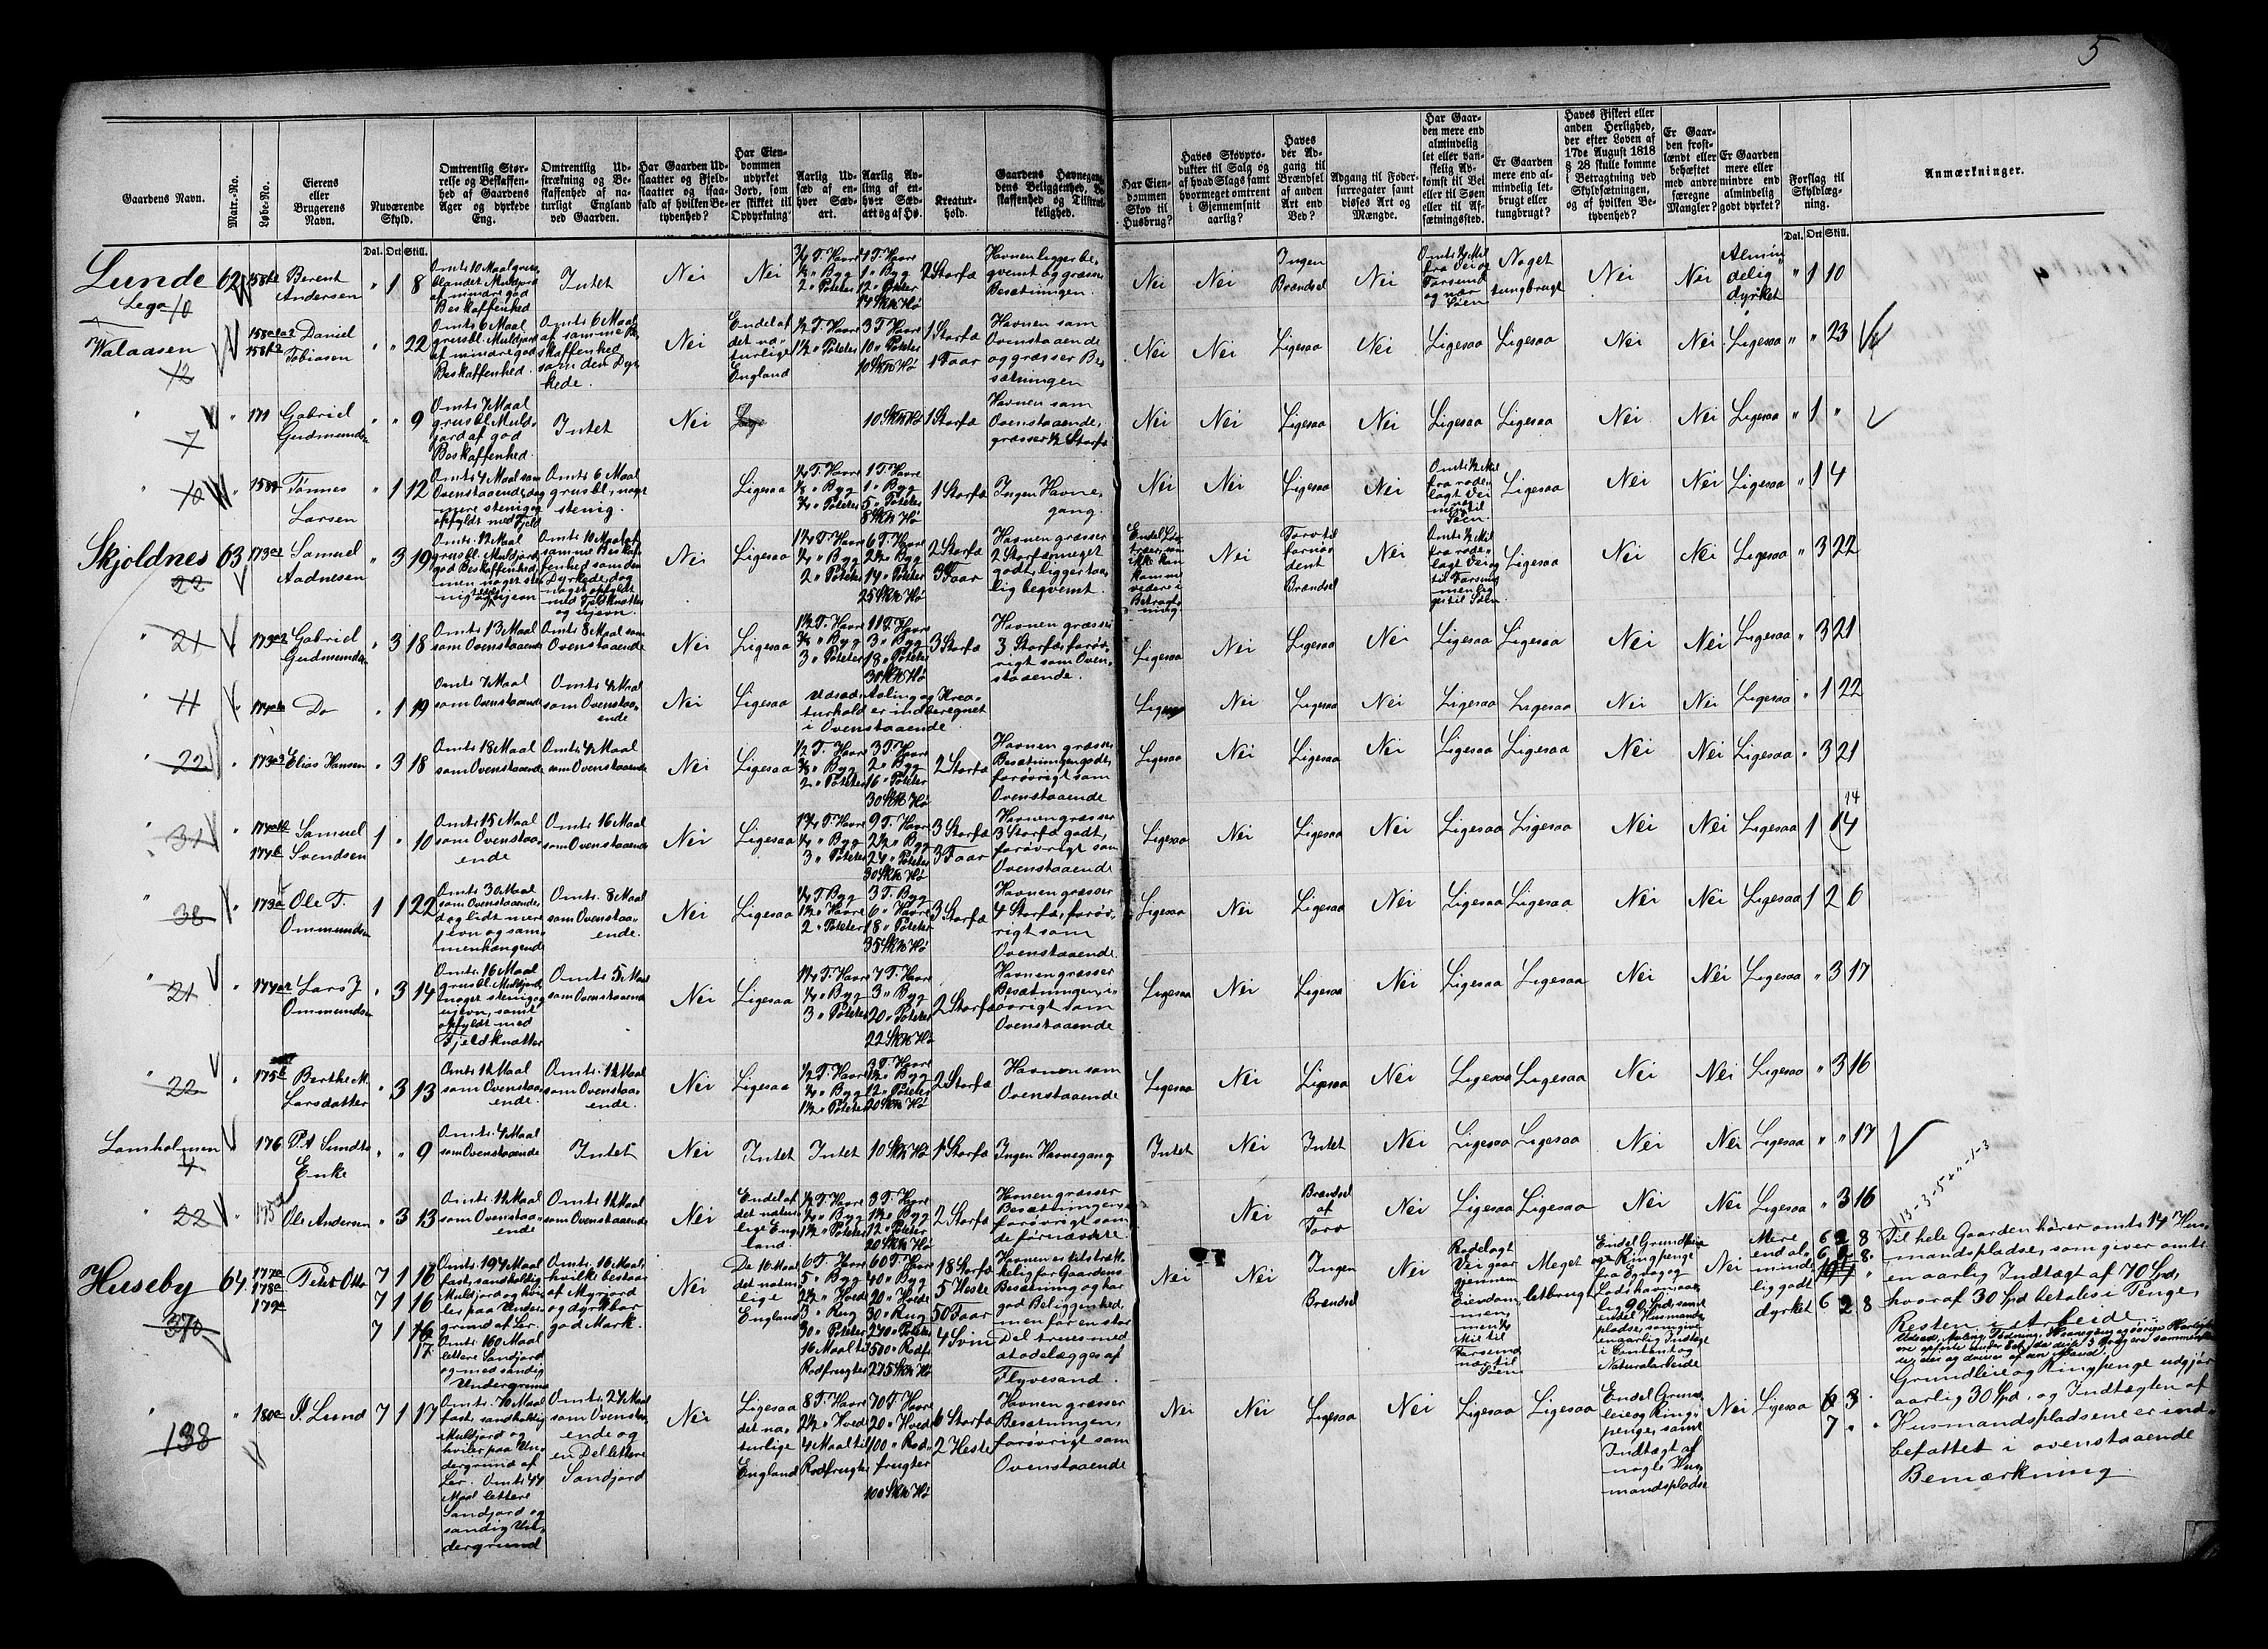 5
Gaardens Navn.
Matr.-No.
Løbe-No.
Eierens eller Brugerens Navn.
Nuværende Skyld.
Omtrentlig Størrelse og Beskaffenhed af Gaardens Ager og dyrkede Eng.
Omtrentlig Udstrækning og Beskaffenhed af naturligt England ved Gaarden.
Har Gaarden Udslaatter og Fjeldslaatter og isaafald af hvilken Betydenhed?
Har Eiendommen udyrket Jord, som er skikket til Opdyrkning
Aarlig Udsæd af enhver Sædart.
Aarlig Avling af enhver Sædart og af Hø.
Kreaturhold.
Gaardens Havnegangs Beliggenhed, Beskaffenhed og Tilstrækkelighed.
Har Eiendommen Skov til Husbrug?
Haves Skovprodukter til Salg og af hvad Slags samt hvormeget omtrent i Gjennemsnit aarlig?
Haves der Adgang til Brændsel af anden Art end Ved?
Adgang til Fodersurrogater samt disses Art og Mængde.
Har Gaarden mere end almindelig let eller vanskelig Adkomst til Vei eller til Søen eller til Afsætningssted.
Er Gaarden mere end almindelig letbrugt eller tungbrugt?
Haves Fiskeri eller anden Herlighed, der efter Loven af 17de August 1818 § 28 skulle komme i Betragtning ved Skyldsætningen, og af hvilken Betydenhed?
Er Gaarden frostlændt eller behæftet med andre særegne Mangler?
Er Gaarden mere eller mindre end almindelig godt dyrket?
Forslag til Skyldlægning.
Anmærkninger.
Dal. Ort Skill.
Dal. Ort Skill.
Lunde Lega 10 62 158b1 Berent Andersen " 1 8 Omtr. 10 Maal grusblandet Muldjord af mindre god Beskaffenhed Intet Nei Nei 3/4 T. Havre 1/8 " Byg 2 " Poteter 4 T. Havre 1 " Byg 12 " Poteter 14 Sk℔ Hø 2 Storfæ Havnen ligger beqvemt og græsser Besætningen. Nei Nei Ingen Brændsel Nei Omtr. 1/2 Mil fra Vei og Farsund og nær Søen Noget tungbrugt Nei Nei Almindelig dyrket " 1 10
Walaasen 12 " 158a2 158b2 Daniel Tobiasen " " 22 Omtr. 6 Maal grusbl. Muldjord af mindre god Beskaffenhed. Omtr. 6 Maal af samme Beskaffenhed som den Dyrkede. Nei Endel af det naturlige England 1/2 T. Havre 1 1/2 " Poteter 3 T. Havre 10 " Poteter 10 Sk℔ Hø 1 Storfæ 1 Faar Havnen som Ovenstaaende og græsser Besætningen Nei Nei Ligesaa Nei Ligesaa Ligesaa Nei Nei Ligesaa " " 23
" 7 " 171 Gabriel Gudmundsen " " 9 Omtr. 7 Maal grusbl. Muldjord af god Beskaffenhed. Intet Nei 10 Sk℔ Hø 1 Storfæ Havnen som Ovenstaaende, græsser 1/2 Storfæ Nei Nei Ligesaa Nei Ligesaa Ligesaa Nei Nei Ligesaa " 1 "
" 10 " Tønnes Larsen " 1 12 Omtr. 4 Maal som Ovenstaaende, dog mere stenig og opfyldt med Fjeld Omtr. 6 Maal grusbl., noget stenig. Ligesaa 1/4 T. Havre 1/8 " Byg 3/4 " Poteter 1 T. Havre 1 " Byg 5 " Poteter 8 Sk℔ Hø 1 Storfæ Ingen Havnegang. Nei Nei Ligesaa Nei Omtr. 1/2 Mil fra rodelagt Vei og nær til Søen. Ligesaa Nei Nei Ligesaa " 1 4
Skjoldnes 22 63 173a1 Samuel Aadnesen " 3 19 Omtr. 12 Maal grusbl. Muldjord, god Beskaffenhed, men noget stenigt og ujevn Omtr. 10 Maal af samme Beskaffenhed som den Dyrkede, dog noget opfyldt med Fjeldknatter og ujevn. Nei Ligesaa 1 1/4 T. Havre 1/4 " Byg 2 " Poteter 6 T. Havre 2 1/2 " Byg 14 " Poteter 25 Sk℔ Hø 2 Storfæ 3 Faar Havnen græsser 2 Storfæ meget godt, ligger taalig beqvemt. Endel Løvtræer, som ikke kan komme videre i Betragtning. Nei Torv til fornødent Brændsel Nei Omtr. 1/2 Mil fra rodelagt Vei og til Farsund men lige til Søen Ligesaa Nei Nei Ligesaa " 3 22
" 21 " 173a2 Gabriel Gudmundsen " 3 18 Omtr. 13 Maal som Ovenstaaende Omtr. 8 Maal som Ovenstaaende Nei Ligesaa 1 1/2 T. Havre 3/8 " Byg 3 " Poteter 11 T. Havre 3 " Byg 18 " Poteter 30 Sk℔ Hø 3 Storfæ Havnen græsser 3 Storfæ, forøvrigt som Ovenstaaende. Ligesaa Nei Ligesaa Nei Ligesaa Ligesaa Nei Nei Ligesaa " 3 21
" 11 " Do " 1 19 Omtr. 7 Maal som Ovenstaaende Omtr. 4 Maal som Ovenstaaende Nei Ligesaa Udsæd, Avling og Kreaturhold er indberegnet i Ovenstaaende Ligesaa Nei Ligesaa Nei Ligesaa Ligesaa Nei Nei Ligesaa " 1 22
" 22 " 173a3 Elias Hansen " 3 18 Omtr. 18 Maal som Ovenstaaende Omtr. 4 Maal som Ovenstaaende Nei Ligesaa 1/2 T. Havre 3/8 " Byg 2 " Poteter 3 T. Havre 2 " Byg 16 " Poteter 30 Sk℔ Hø 2 Storfæ Havnen græsser Besætningen godt, forøvrigt som Ovenstaaende Ligesaa Nei Ligesaa Nei Ligesaa Ligesaa Nei Nei Ligesaa " 3 21
" 31 " 174b Samuel Svendsen 1 " 10 Omtr. 15 Maal som Ovenstaaende Omtr. 16 Maal som Ovenstaaende Nei Ligesaa 1 3/4 T. Havre 1/4 " Byg 3 " Poteter 9 T. Havre 2 1/2 " Byg 24 " Poteter 30 Sk℔ Hø 3 Storfæ 3 Faar Havnen græsser 3 Storfæ godt, forøvrigt som Ovenstaaende Ligesaa Nei Ligesaa Nei Ligesaa Ligesaa Nei Nei Ligesaa 1 14
" 38 " Ole T. Ommundsen 1 1 22 Omtr. 30 Maal som Ovenstaaende, dog lidt mere jevn og sammenhængende Omtr. 8 Maal som Ovenstaaende. Nei Ligesaa 1/4 T. Byg 1 1/2 " Havre 2 " Poteter 3 T. Byg 6 " Havre 18 " Poteter 35 Sk℔ Hø 3 Storfæ Havnen græsser 4 Storfæ, forøvrigt som Ovenstaaende. Ligesaa Nei Ligesaa Nei Ligesaa Ligesaa Nei Nei Ligesaa 1 2 6
" 21 " 174a2 Lars J. Ommundsen " 3 14 Omtr. 16 Maal grusbl. Muldjord, noget stenig og ujevn, samt opfyldt med Fjeldknatter Omtr. 5 Maal som Ovenstaaende Nei Ligesaa 1 1/4 T. Havre 1/4 " Byg 3 " Poteter 7 T. Havre 3 " Byg 20 " Poteter 22 Sk℔ Hø 2 Storfæ Havnen græsser Besætningen, iøvrigt som Ovenstaaende Ligesaa Nei Ligesaa Nei Ligesaa Ligesaa Nei Nei Ligesaa " 3 17
" 22 " 175b Berthe M. Larsdatter " 3 13 Omtr. 11 Maal som Ovenstaaende. Omtr. 11 Maal som Ovenstaaende. Nei Ligesaa 1/2 T. Havre 1/4 " Byg 1 1/2 " Poteter 3 T. Havre 1 1/2 " Byg 12 " Poteter 20 Sk℔ Hø 2 Storfæ Havnen som Ovenstaaende Ligesaa Nei Ligesaa Nei Ligesaa Ligesaa Nei Nei Ligesaa " 3 16
Lamholmen 4 " 176 P. A. Sundts Enke " " 9 Omtr. 4 Maal som Ovenstaaende Intet Nei Intet Intet 10 Sk℔ Hø 1 Storfæ Ingen Havnegang Intet Nei Intet Nei Ligesaa Ligesaa Nei Nei Ligesaa " " 17
" 22 " 175 Ole Andersen " 3 13 Omtr. 11 Maal som Ovenstaaende Omtr. 11 Maal som Ovenstaaende Nei Endel af det naturlige England. 1/2 T. Havre 1/4 " Byg 1 1/2 " Poteter 3 T. Havre 1 1/2 " Byg 12 " Poteter 20 Sk℔ Hø 2 Storfæ Havnen græsser Besætningen, forøvrigt som de førnævnte Nei Brændsel af Torv Nei Ligesaa Ligesaa Nei Nei Ligesaa " 3 16
Huseby 370 64 177a 178a 179a Peter Otto 7 1 16 7 1 16 7 1 16 17 Omtr. 194 Maal fast, sandholdig Muldjord og hviler paa Undergrund af Ler. Omtr. 160 Maal lettere Sandjord og med sandig Undergrund Omtr. 16 Maal, hvilke bestaar af Myrjord og dyrkbar god Mark. Nei De 16 Maal det naturlige England 6 T. Havre 5 " Byg 2 1/2 " Hvede 3 " Rug 30 " Poteter 16 Maal til Rodfrugter 60 T. Havre 40 " Byg 20 " Hvede 30 " Rug 240 " Poteter 1500 " Rodf. 275 Sk℔ Hø 18 Storfæ 5 Heste 50 Faar 4 Sviin Havnen er tilstrækkelig for Gaardens Besætning og har god Beliggenhed, men for en stor Del trues med at ødelægges af Flyvesand. Nei Nei Ingen Brændsel Nei Rodelagt Vei gaar gjennem Eiendommen, men 1/2 Mil til Farsund, nær til Søen Meget letbrugt Endel Grundleie og Ringpenge fra Egvaag og Loshavn, aarlig 90 Spd, samt endel Husmandspladse, som give en aarlig Indtægt i Contant og Naturalarbeide Nei Mere end almindlig godt dyrket 6 2 8 6 2 8 6 2 8
13-3-5
Til hele Gaarden hører omtr. 14 Husmandspladse, som giver omtr. en aarlig Indtægt af 70 Spd, hvoraf 30 Spd betales i Penge, Resten i Arbeide.
" 138 " 180a P. Lund 7 1 17 Omtr. 70 Maal fast, sandholdig Muldjord og hviler paa Undergrund af Ler. Omtr. 44 Maal lettere Sandjord og sandig Undergrund Omtr. 24 Maal som Ovenstaaende og en Del lettere Sandjord Nei Ligesaa det naturlige England 8 T. Havre 2 1/2 " Hvede 4 Maal til Rodfrugter 70 T. Havre 20 " Hvede 100 " Rodfrugter 100 Sk℔ Hø 6 Storfæ 2 Heste Havnen græsser Besætningen, forøvrigt som Ovenstaaende Nei Nei Ligesaa Nei Ligesaa Ligesaa Endel Grundleie og Ringpenge, samt Indtægt af nogle Husmandspladse Nei Ligesaa 6 3 " 7 " "
Grundleie og Ringpenge udgjør aarlig 30 Spd, og Indtægten af Husmandspladsene er indbefattet i ovenstaaende Bemærkning.